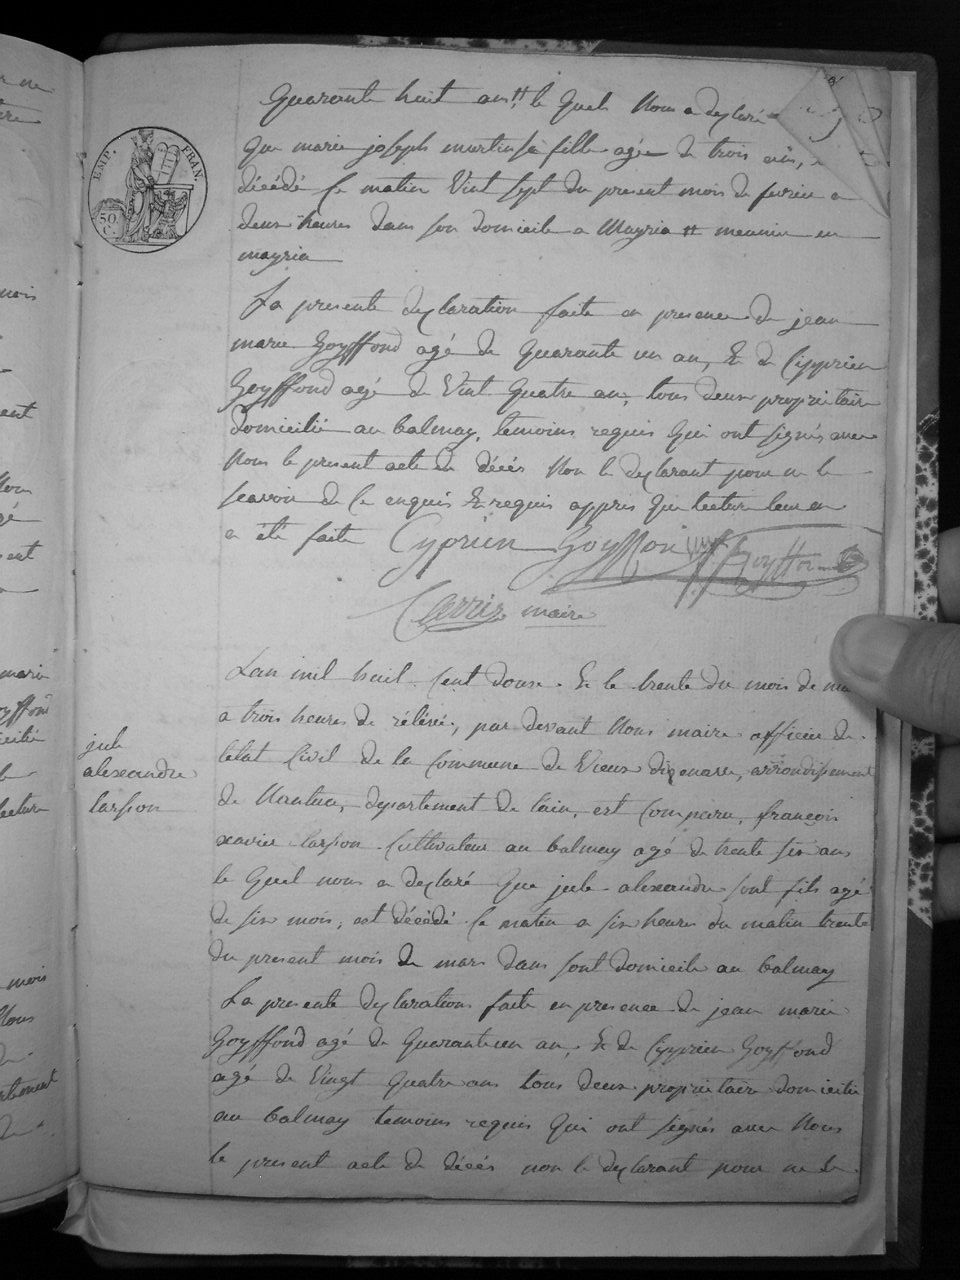 EMP. FRAN.
50.
C.
quarante huit ans, le quel nous a declaré
que marie joseph martin sa fille agée de trois ans,
décédé le matin vint sept du present mois de fevrier a
deux heures dans son domicile a Mayria meunier en
mayria
La presente declaration faite en presence de jean
marie Goyffond agé de quarante un an, & de Cipprien
Goyffond agé de vint quatre an, tous deux proprietaire
domicilié au balmay, temoins requis qui ont signés avec
Nous le present acte de décés non le declarant pour ne le
scavoir de ce enquis & requis appris que lecture leur en
a été faite Cyprien Goyffon Goyffon
maire
Lan mil huit cent douse & le trente du mois de
a trois heures de rélévé, par devant Nous maire officier de
letat Civil de la Commune de Vieux disenave, arrondissement
de Nantua, departement de lain, est comparu, françois
xavier Carpon Cultivateur au balmay agé de trente six ans
le quel nous a declaré que jule alexandre sont fils agé
de six mois, est décédé le matin a six heures du matin trente
du present mois de mars dans sont domicile au balmay
La presente declarations faite en presence de jean marie
Goyffond agé de quarante un an, & de Cipprien Goyffond
agé de vingt quatre ans tous deux proprietaire domicilié
au balmay temoins requis qui ont signés avec Nous
le present acte de décés non le declarant pour ne le
jule
alexandre
Carpon